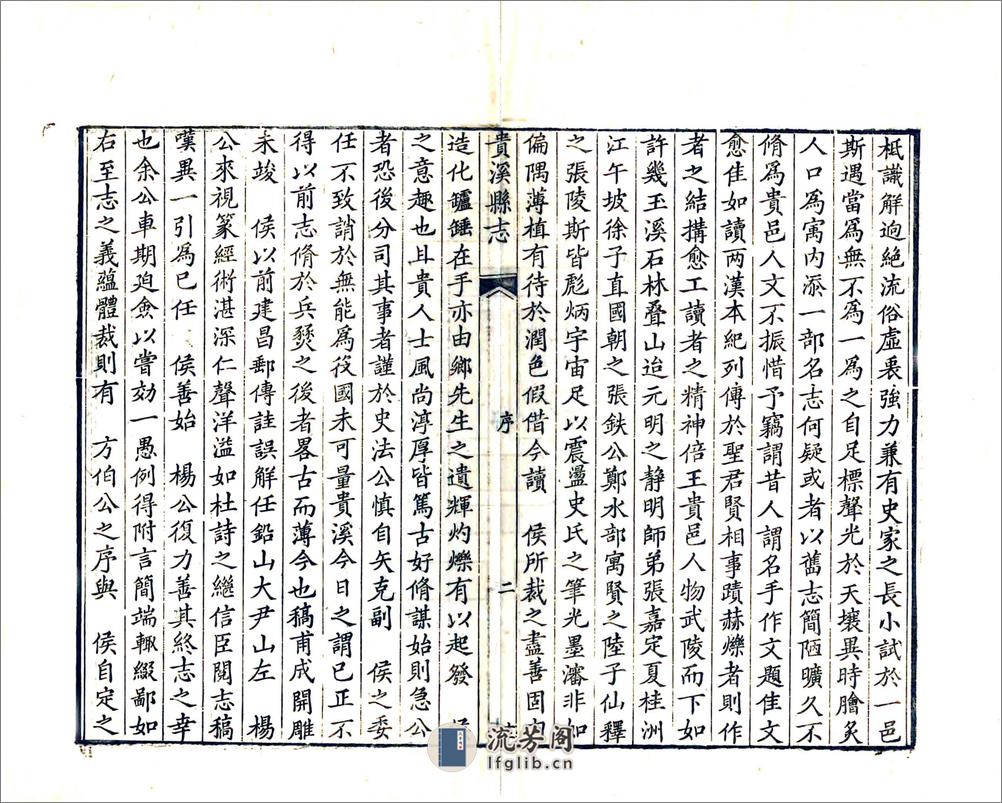 柢識解逈絶流俗虛衷強力兼有史家之長小試於一邑
斯遇當爲無不爲一爲之自足標聲光於天壤異時膾炙
人口爲寓内添一部名志何疑或者以舊志簡陋曠久不
脩爲貴邑人文不振惜予竊謂昔人謂名手作文題佳文
愈佳如讀两漢本紀列傳於聖君賢相事蹟赫爍者則作
者之結搆愈工讀者之精神倍王貴邑人物武陵而下如
許幾玉溪石林叠山迨元明之静明師弟張嘉定夏桂洲
江午坡徐子直國朝之張鉄公鄭水部寓賢之陸子仙釋
之張陵斯皆彪炳宇宙足以震盪史氏之筆光墨瀋非如
偏隅薄植有待於潤色假借今讀　侯所裁之盡善固由
貴溪縣志　序　二
造化鑪錘在手亦由鄉先生之遺輝灼爍有以起發
之意趣也且貴人士風尚淳厚皆篤古好脩謀始則急公
者恐後分司其事者謹於史法公慎自矢克副　侯之委
任不致誚於無能爲役國未可量貴溪今日之謂已正不
得以前志脩於兵燹之後者畧古而薄今也稿甫成開雕
未竣　侯以前建昌郵傳詿誤解任鉛山大尹山左　楊
公來視篆經術湛深仁聲洋溢如杜詩之繼信臣閱志稿
嘆異一引爲已任　侯善始　楊公復力善其終志之幸
也余公車期迫僉以嘗効一愚例得附言簡端輙綴鄙如
右至志之義蘊體裁則有　方伯公之序與　侯自定之
流芳阁
lfglib.cn